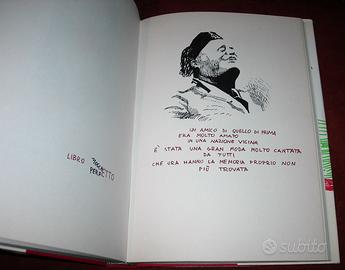 LIBRO
PERFETTO
UN AMICO DI QUELLO DI PRIMA
ERA MOLTO AMATO
IN UNA NAZIONE VICINA
È STATA UNA GRAN MODA MOLTO CANTATA
DA TUTTI
CHE ORA HANNO LA MEMORIA PROPRIO NON
PIÙ TROVATA
subito